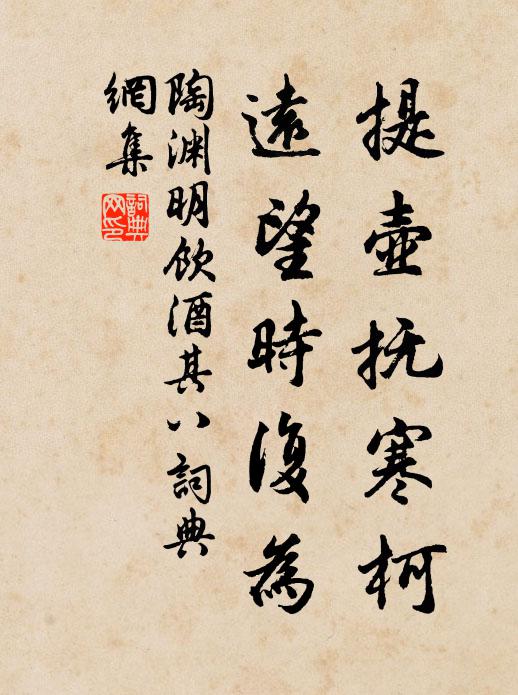 提壺抚寒柯
遠望時復為
陶渊明飲酒其八詞典
網集
詞典
网印